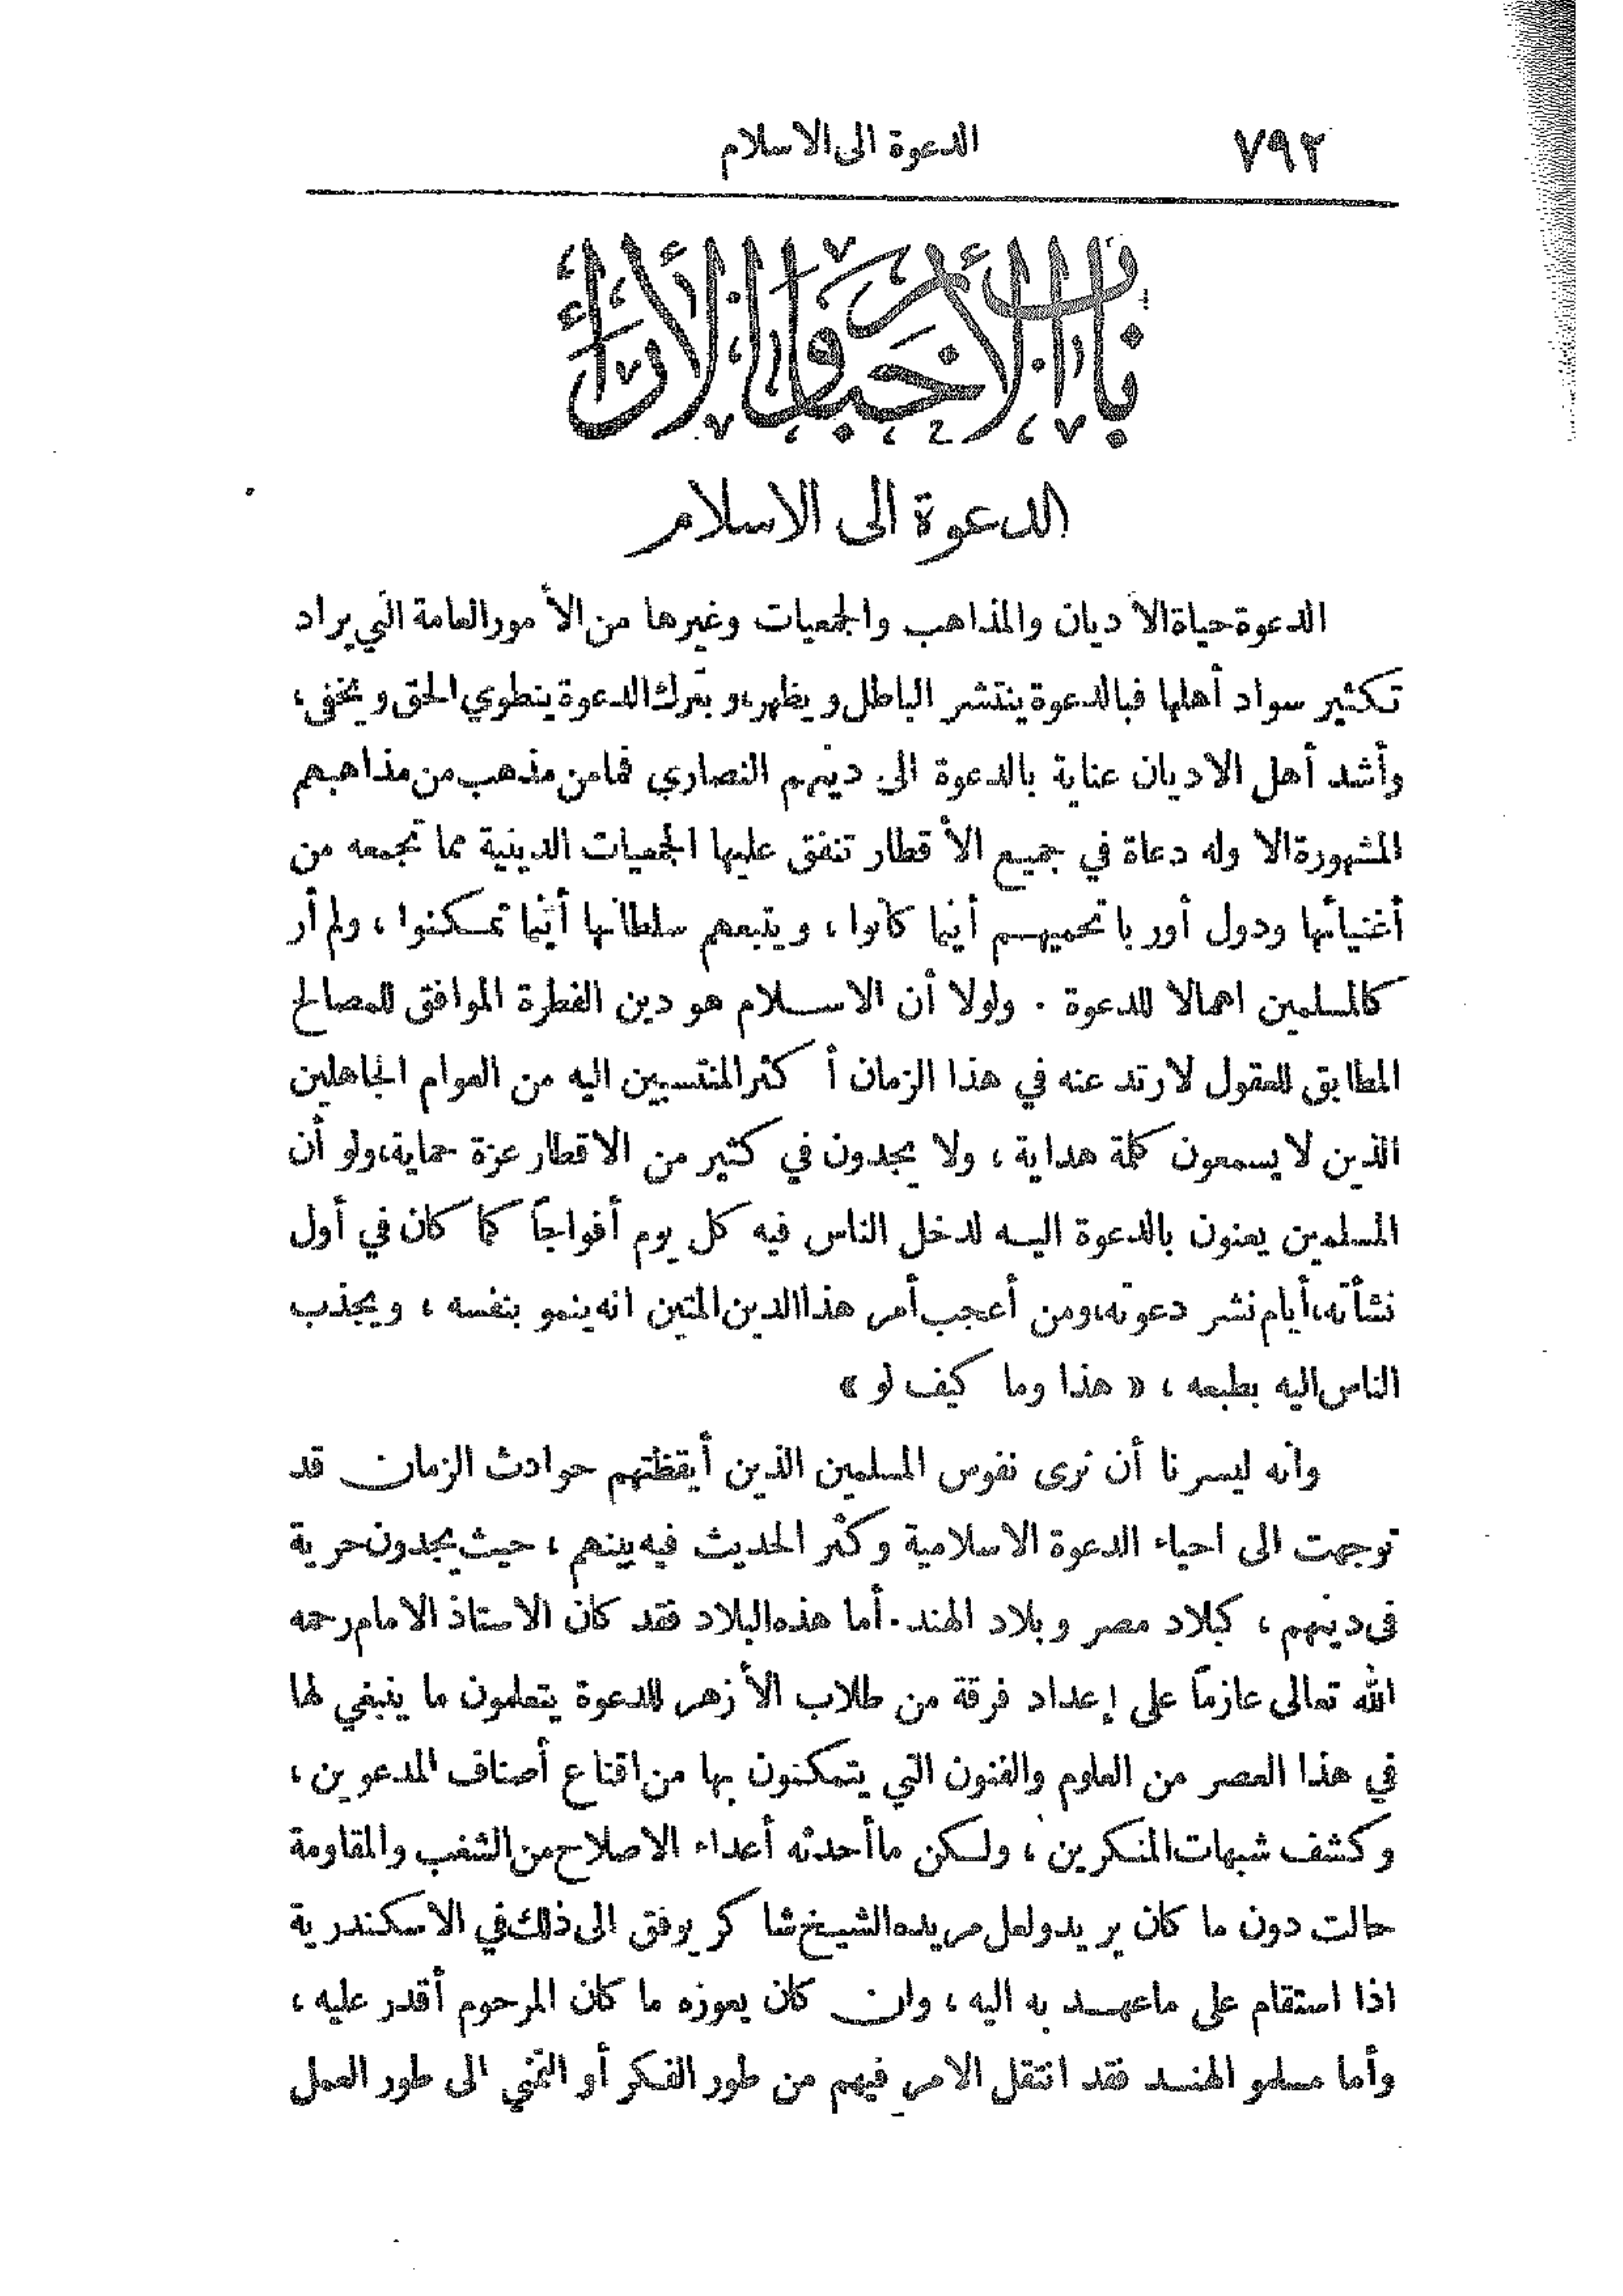 ٧٩٢
الدعوة الى الاسلام
باب الأخبار والآراء
الدعوة الى الاسلام
الدعوة حياة الأديان والمذاهب والجمعيات وغيرها من الأمور العامة التي يراد
تكثير سواد أهلها فبالدعوة ينتشر الباطل ويظهر، وبترك الدعوة ينطوي الحق ويخفى،
وأشد أهل الاديان عناية بالدعوة الى دينهم النصارى فما من مذهب من مذاهبهم
المشهورة الا وله دعاة في جميع الأقطار تنفق عليها الجمعيات الدينية مما تجمعه من
أغنيائها ودول أوربا تحميهم أينما كانوا ، ويتبعهم سلطانها أينما تمكنوا ، ولم أر
كالمسلمين اهمالا للدعوة . ولولا أن الاسلام هو دين الفطرة الموافق للمصالح
المطابق للعقول لارتد عنه في هذا الزمان أكثر المنتسبين اليه من العوام الجاهلين
الذين لا يسمعون كلمة هداية ، ولا يجدون في كثير من الاقطار عزة حماية، ولو أن
المسلمين يعنون بالدعوة اليه لدخل الناس فيه كل يوم أفواجاً كما كان في أول
نشأته، أيام نشر دعوته، ومن أعجب أمر هذا الدين المتين انه ينمو بنفسه ، ويجذب
الناس اليه بطبعه ، « هذا وما كيف لو »
وانه ليسرنا أن نرى نفوس المسلمين الذين أيقظتهم حوادث الزمان قد
توجهت الى احياء الدعوة الاسلامية وكثر الحديث فيه بينهم ، حيث يجدون حرية
في دينهم ، كبلاد مصر وبلاد الهند . أما هذه البلاد فقد كان الاستاذ الامام رحمه
الله تعالى عازماً على إعداد فرقة من طلاب الأزهر للدعوة يتعلمون ما ينبغي لها
في هذا العصر من العلوم والفنون التي يتمكنون بها من اقناع أصناف المدعوين ،
وكشف شبهات المنكرين ، ولكن ما أحدثه أعداء الاصلاح من الشغب والمقاومة
حالت دون ما كان يريد ولعل مريده الشيخ شاكر يوفق الى ذلك في الاسكندرية
اذا استقام على ما عهد به اليه ، وان كان يعوزه ما كان المرحوم أقدر عليه ،
وأما مسلمو الهند فقد انتقل الامر فيهم من طور الفكر أو التمني الى طور العمل